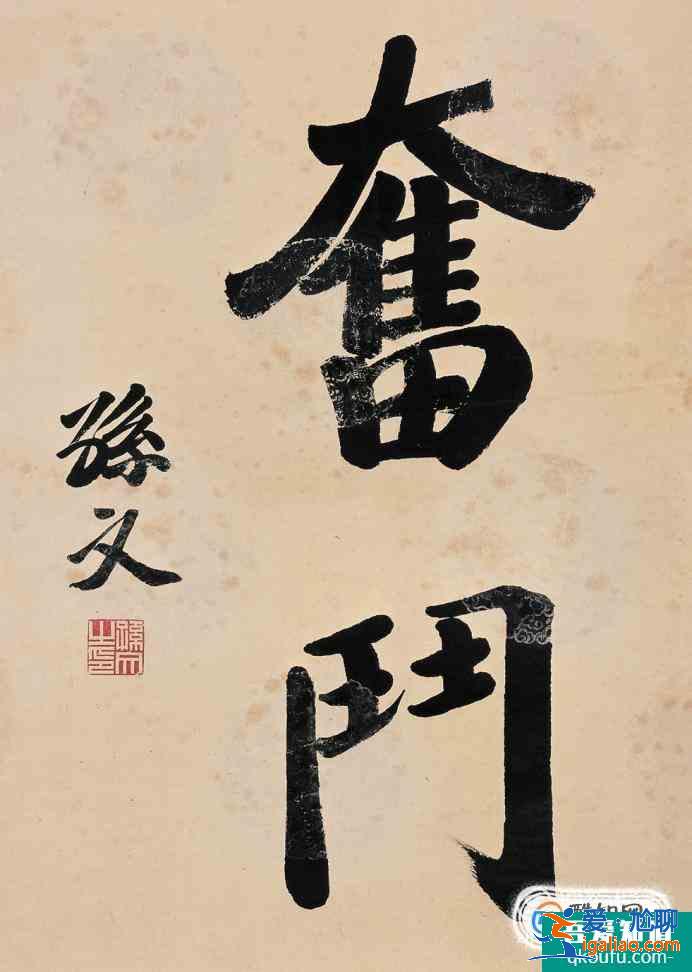 奮鬥
孫文
孫文之印
爱尬聊
igaliao.com